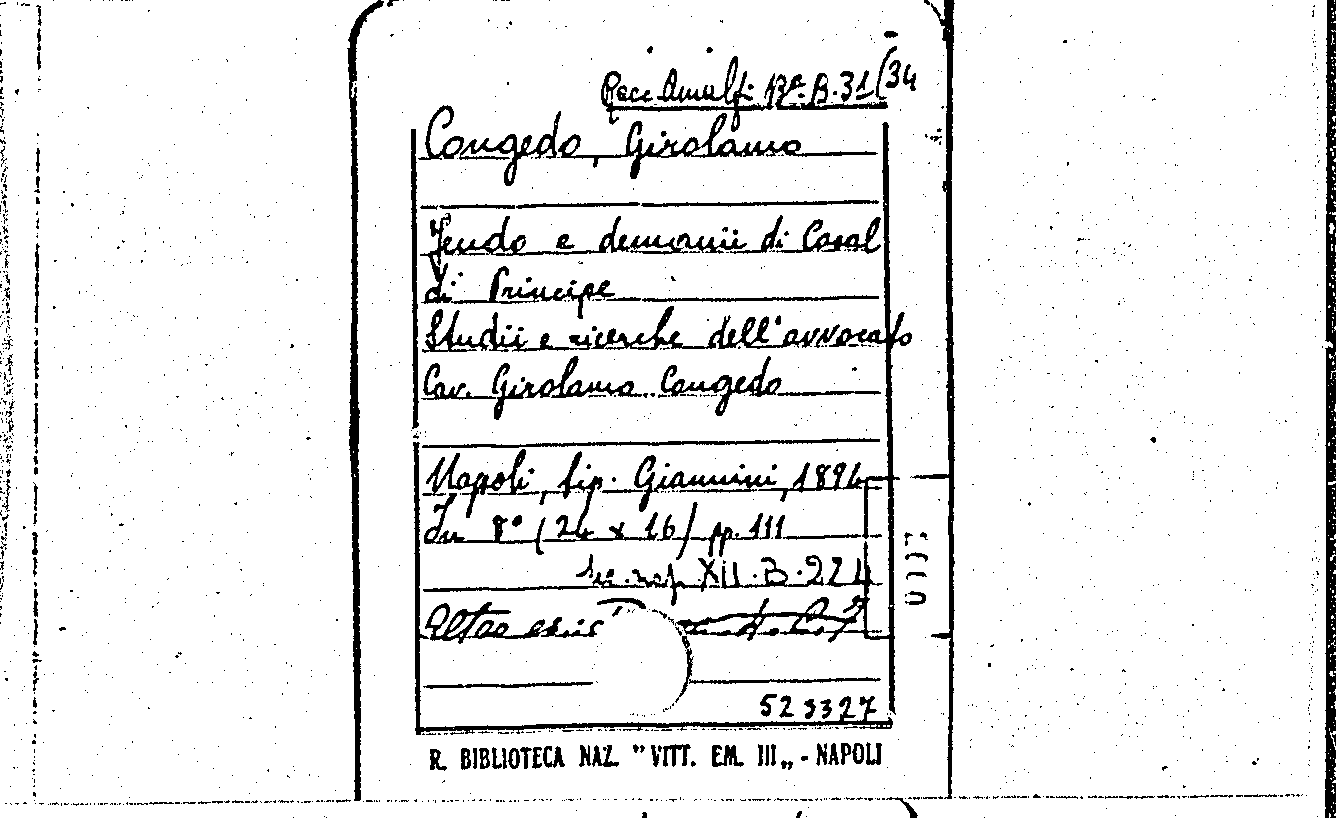 Racc. Amalfi Bª. B. 31(34
Congedo, Girolamo
Feudo e demanii di Casal
di Principe
Studii e ricerche dell'avvocato
Cav. Girolamo Congedo
Napoli, tip. Giannini, 1894
In 8° (24 x 16) pp. 111
Sez. nap. XII. B. 274
523327
R. BIBLIOTECA NAZ. "VITT. EM. III„ - NAPOLI